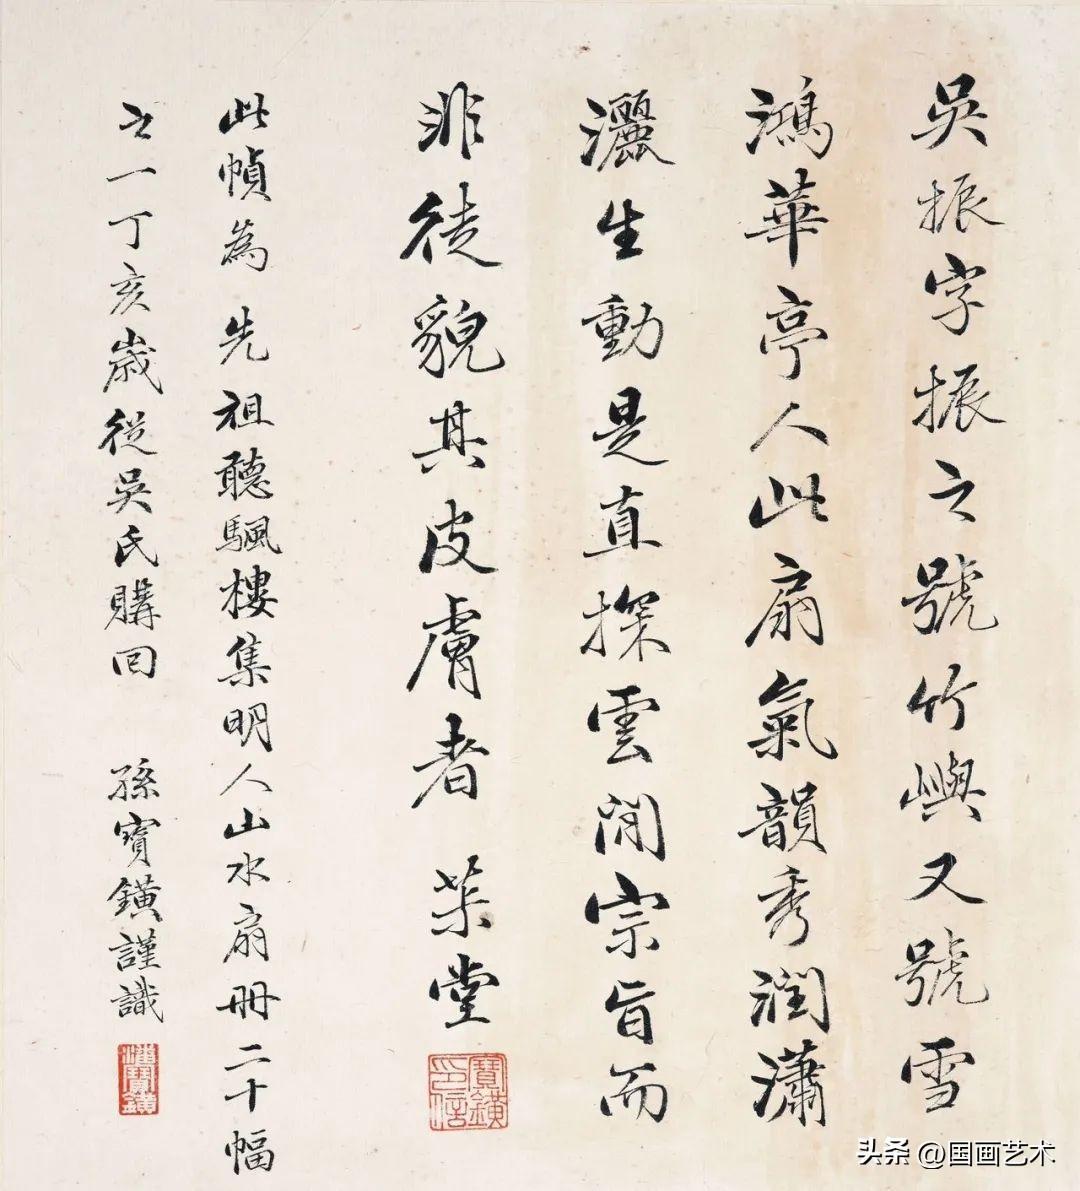 吳振字振之號竹嶼又號雪
鴻華亭人此扇氣韻秀潤瀟
灑生動是直探雲閒宗旨而
非徒貌其皮膚者 棻堂
寶鐄
印信
此幀為 先祖聽颿樓集明人山水扇冊二十幅
之一丁亥歲從吳氏購回 孫寶鐄謹識
頭条 @国画艺术